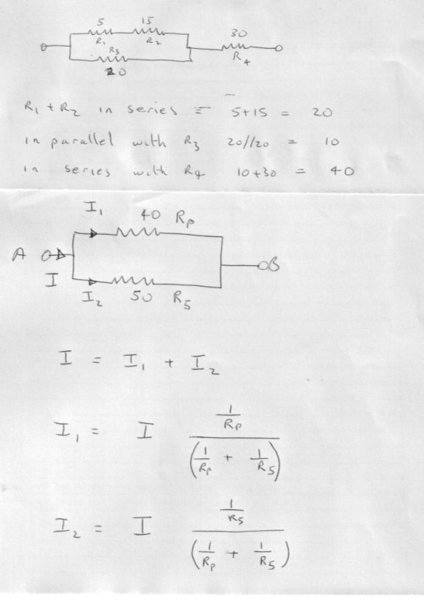 5 15 30
R1 R2 R4
R3
20
R1 + R2 in series = 5+15 = 20
in parallel with R3 20//20 = 10
in series with R4 10+30 = 40
I1 40 Rp
A I B
I2 50 R5
I = I1 + I2
I1 = I (1/Rp) / (1/Rp + 1/R5)
I2 = I (1/R5) / (1/Rp + 1/R5)